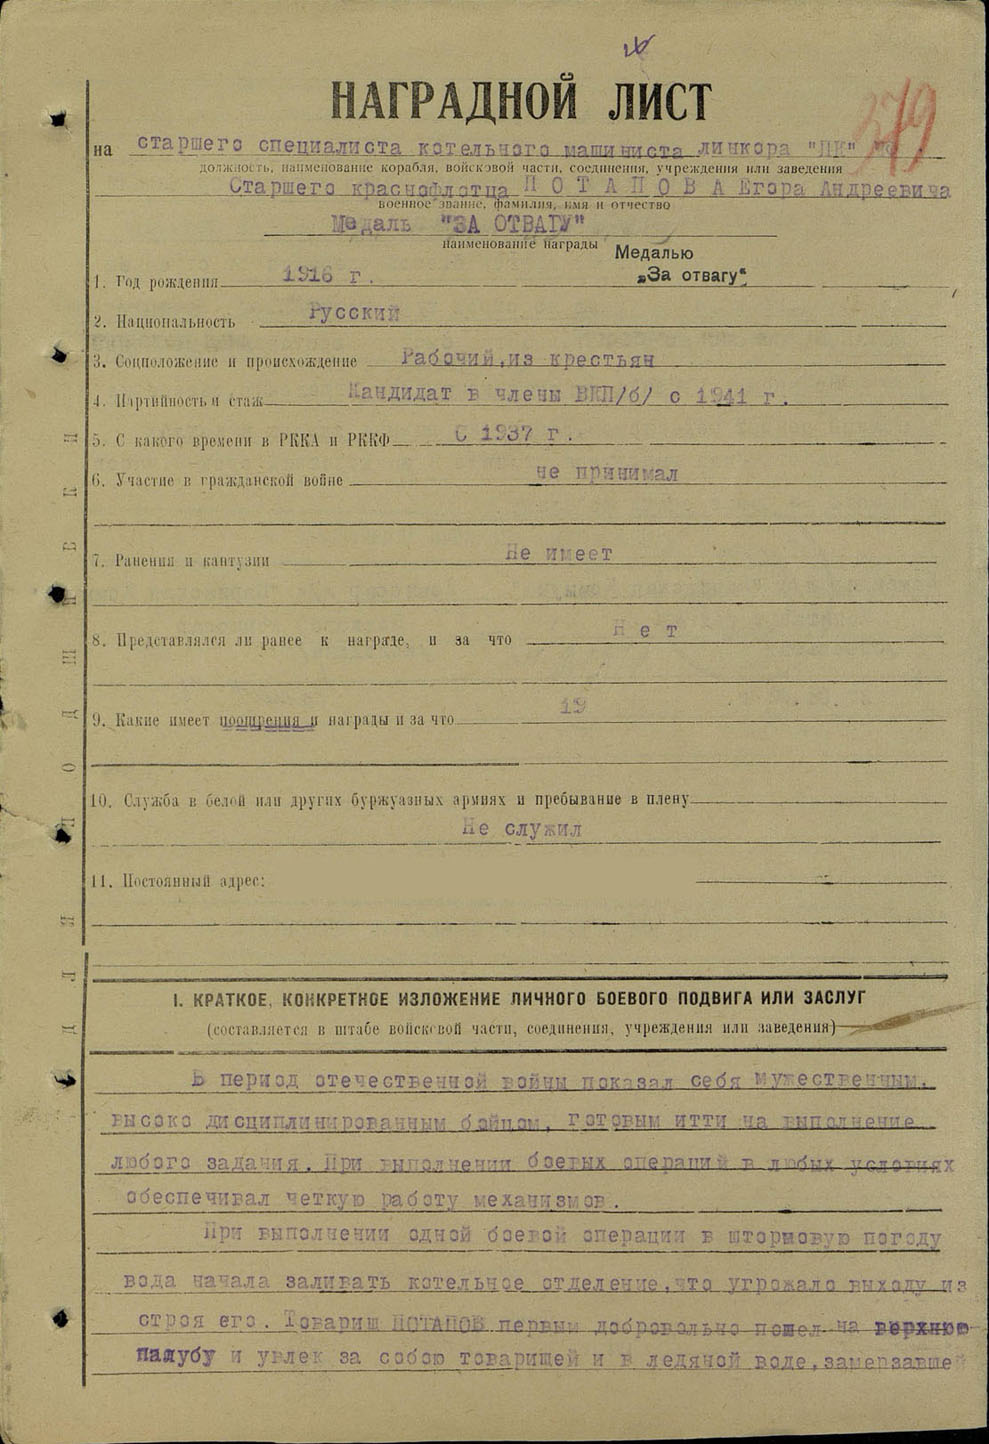 НАГРАДНОЙ ЛИСТ
279
на старшего специалиста котельного машиниста линкора "ПК"
должность, наименование корабля, войсковой части, соединения, учреждения или заведения
Старшего краснофлотца ПОТАПОВА Егора Андреевича
военное звание, фамилия, имя и отчество
Медаль "ЗА ОТВАГУ"
наименование награды
Медалью
„За отвагу“
1. Год рождения 1916 г.
2. Национальность Русский
3. Соцположение и происхождение Рабочий, из крестьян
4. Партийность и стаж Кандидат в члены ВКП/б/ с 1941 г.
5. С какого времени в РККА и РККФ С 1937 г.
6. Участие в гражданской войне не принимал
7. Ранения и кантузии Не имеет
8. Представлялся ли ранее к награде, и за что Нет
9. Какие имеет поощрения и награды и за что 19
10. Служба в белой или других буржуазных армиях и пребывание в плену
Не служил
11. Постоянный адрес:
I. КРАТКОЕ, КОНКРЕТНОЕ ИЗЛОЖЕНИЕ ЛИЧНОГО БОЕВОГО ПОДВИГА ИЛИ ЗАСЛУГ
(составляется в штабе войсковой части, соединения, учреждения или заведения)
В период отечественной войны показал себя мужественным,
высоко дисциплинированным бойцом, готовым итти на выполнение
любого задания. При выполнении боевых операций в любых условиях
обеспечивал четкую работу механизмов.
При выполнении одной боевой операции в штормовую погоду
вода начала заливать котельное отделение, что угрожало выходу из
строя его. Товарищ ПОТАПОВ первым добровольно пошел на верхнюю
палубу и увлек за собою товарищей и в ледяной воде, замерзавшей